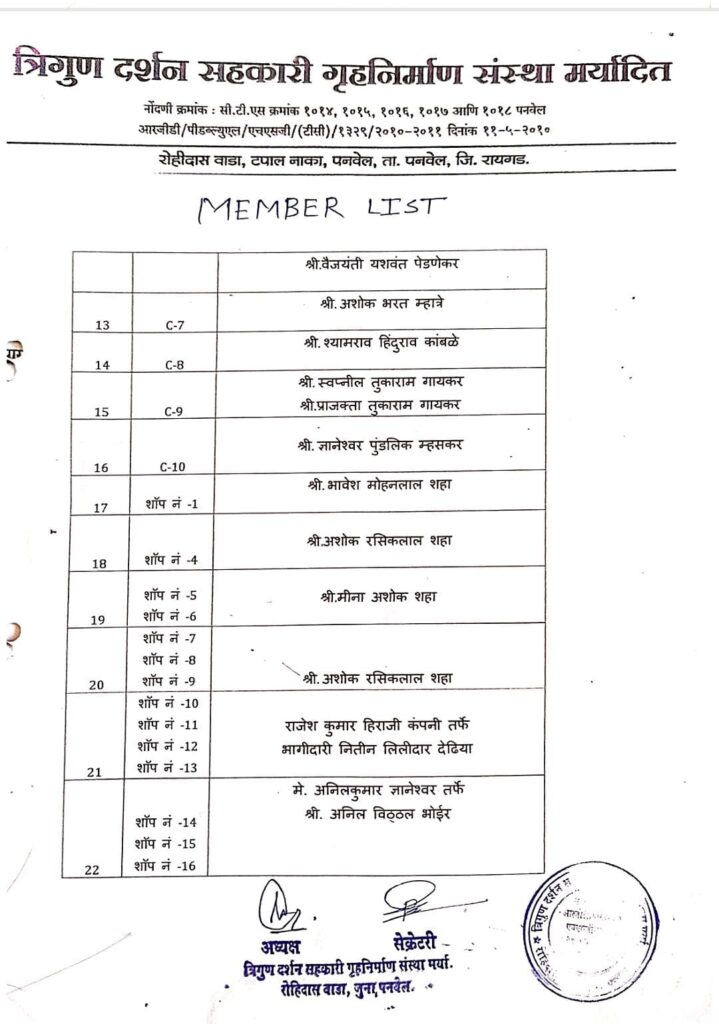 त्रिगुण दर्शन सहकारी गृहनिर्माण संस्था मर्यादित
नोंदणी क्रमांक : सी.टी.एस क्रमांक १०१४, १०१५, १०१६, १०१७ आणि १०१८ पनवेल
आरजीडी/पीडब्ल्युएल/एचएसजी/(टीसी)/१३२९/२०१०-२०११ दिनांक ११-५-२०१०
रोहीदास वाडा, टपाल नाका, पनवेल, ता. पनवेल, जि. रायगड.
MEMBER LIST
श्री.वैजयंती यशवंत पेडणेकर
13 C-7 श्री.अशोक भरत म्हात्रे
14 C-8 श्री.श्यामराव हिंदुराव कांबळे
श्री.स्वप्नील तुकाराम गायकर
15 C-9 श्री.प्राजक्ता तुकाराम गायकर
16 C-10 श्री. ज्ञानेश्वर पुंडलिक म्हसकर
17 शॉप नं -1 श्री.भावेश मोहनलाल शहा
18 शॉप नं -4 श्री.अशोक रसिकलाल शहा
शॉप नं -5 श्री.मीना अशोक शहा
19 शॉप नं -6
शॉप नं -7
शॉप नं -8
20 शॉप नं -9 श्री.अशोक रसिकलाल शहा
शॉप नं -10
शॉप नं -11 राजेश कुमार हिराजी कंपनी तर्फे
शॉप नं -12 भागीदारी नितीन लिलीदार देढिया
21 शॉप नं -13
मे. अनिलकुमार ज्ञानेश्वर तर्फे
शॉप नं -14 श्री. अनिल विठ्ठल भोईर
शॉप नं -15
22 शॉप नं -16
अध्यक्ष सेक्रेटरी
त्रिगुण दर्शन सहकारी गृहनिर्माण संस्था मर्या.
रोहिदास वाडा, जुना पनवेल.
त्रिगुण दर्शन स